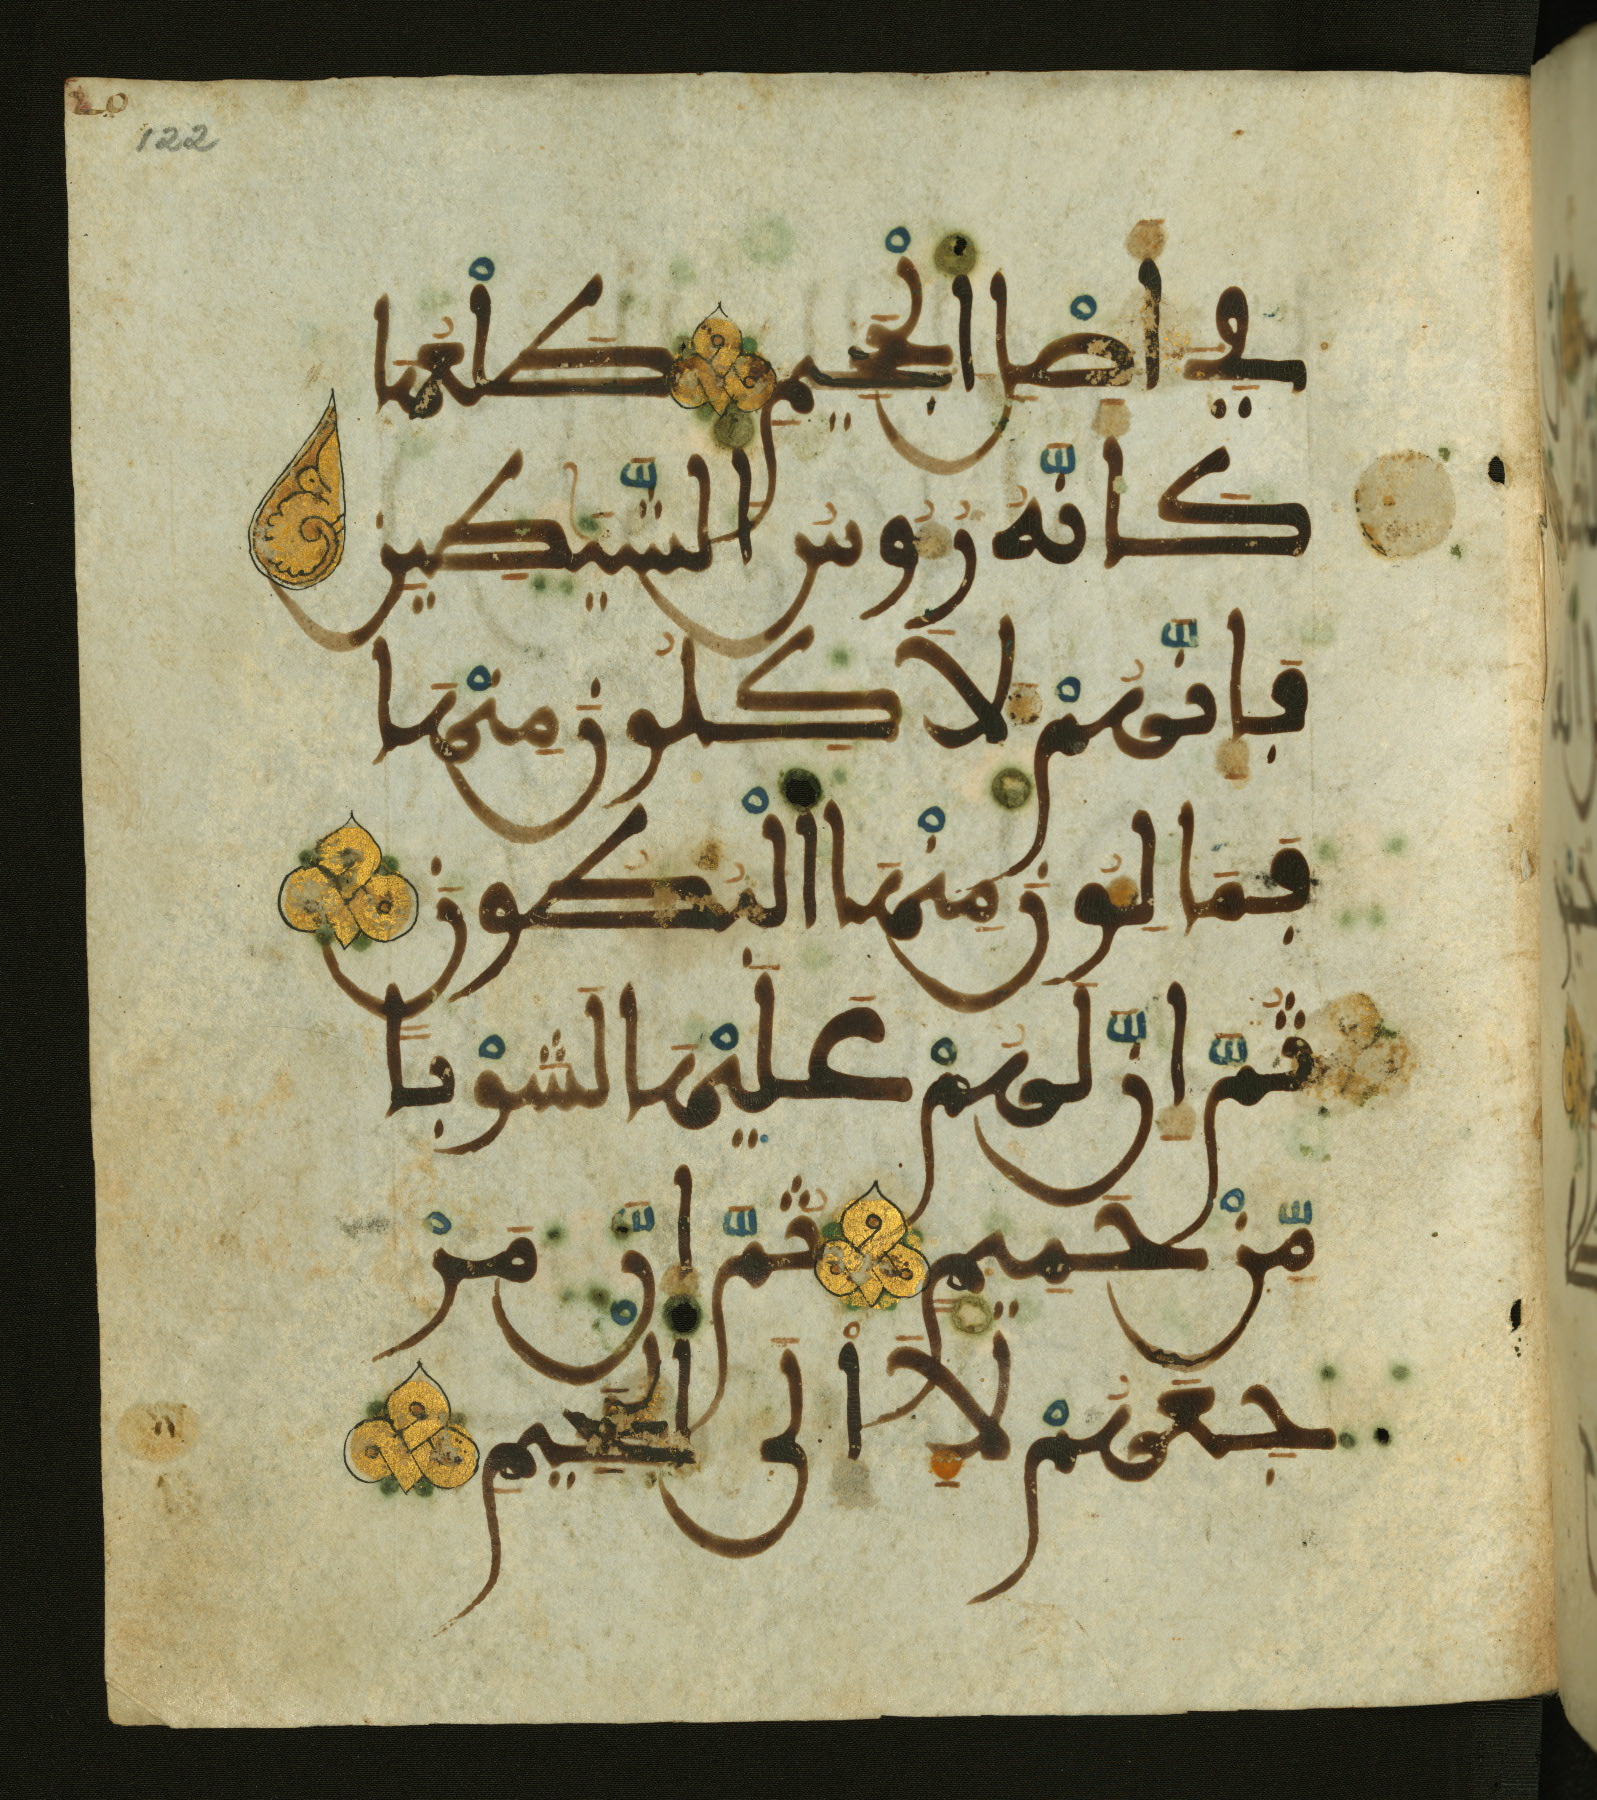 20
122
فِي أَصْلِ الْجَحِيمِ طَلْعُهَا
كَأَنَّهُ رُءُوسُ الشَّيَٰطِينِ
فَإِنَّهُمْ لَأَكِلُونَ مِنْهَا
فَمَالِـُٔونَ مِنْهَا الْبُطُونَ
ثُمَّ إِنَّ لَهُمْ عَلَيْهَا لَشَوْبًا
مِّنْ حَمِيمٍ ثُمَّ إِنَّ مَرْ
جِعَهُمْ لَإِلَى الْجَحِيمِ